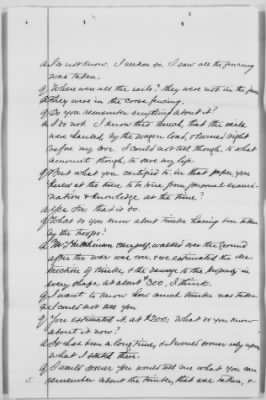 a. I do not know. I reckon so. I saw all the fencing
was taken.
q. Where were all the rails? they were not in the
a. they were in the cross fencing.
q. Do you remember anything about it?
a. I do not. I know this much, that the rails
were hauled, by the wagon load, & burned right
before my eye. I could not tell though, to what
amount though, to save my life.
q. But what you certified to, in that paper, you
knew at the time to be true, from personal exami-
nation & knowledge at the time?
a. Yes Sir that is so.
q. What do you know about timber having been taken
by the troops?
a. Mr Hutchinson & myself, walked over the ground
after the war was over, & we estimated the de-
struction of timber, & the damage to the property in
every shape, at about $300, I think.
q. I want to know how much timber was taken.
a. I could not tell you
q. You estimated it at $200; What do you know
about it now?
a. It has been a long time, & I would answer only upon
what I stated there.
q. I would sooner you would tell me what you can
remember about the timber, that was taken, &